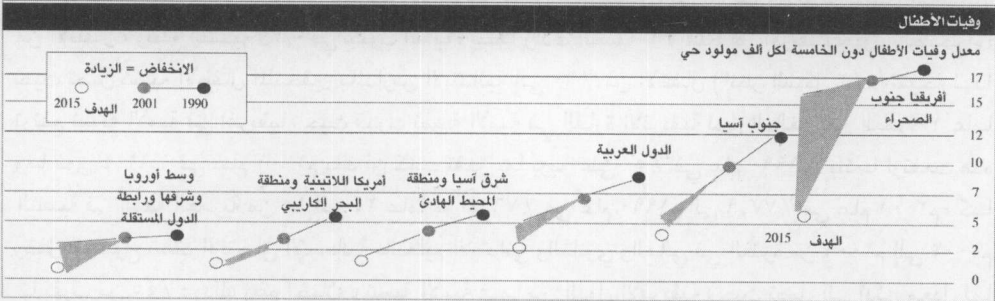 وفيات الأطفال
معدل وفيات الأطفال دون الخامسة لكل ألف مولود حي
الإنخفاض = الزيادة
1990 2001 2015
الهدف
17
15
12
10
7
5
2
0
أفريقيا جنوب
الصحراء
جنوب آسيا
الدول العربية
شرق آسيا ومنطقة
المحيط الهادئ
أمريكا اللاتينية ومنطقة
البحر الكاريبي
وسط أوروبا
وشرقها ورابطة
الدول المستقلة
الهدف 2015